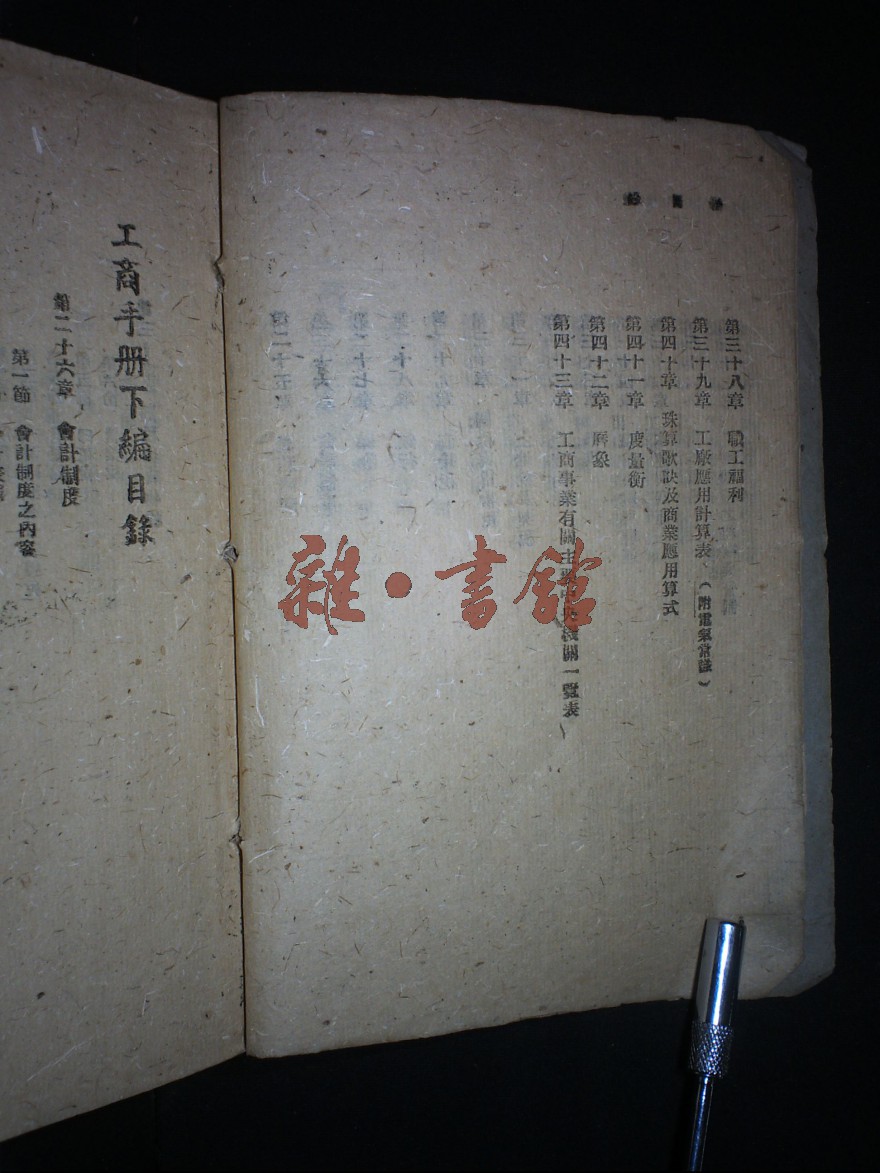 總目錄
第三十八章 職工福利
第三十九章 工廠應用計算表(附電氣常識)
第四十章 珠算歌訣及商業應用算式
第四十一章 度量衡
第四十二章 曆象
第四十三章 工商事業有關主要中央機關一覽表
工商手册下編目錄
第二十六章 會計制度
第一節 會計制度之內容
雜·書館